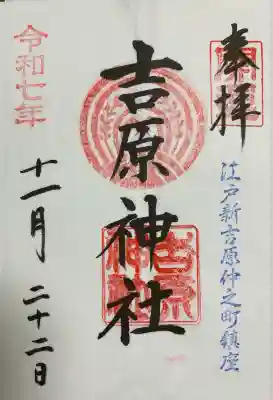 奉拝
江戸新吉原仲之町鎮座
吉原神社
令和七年
十一月 二十二日
吉原
神社